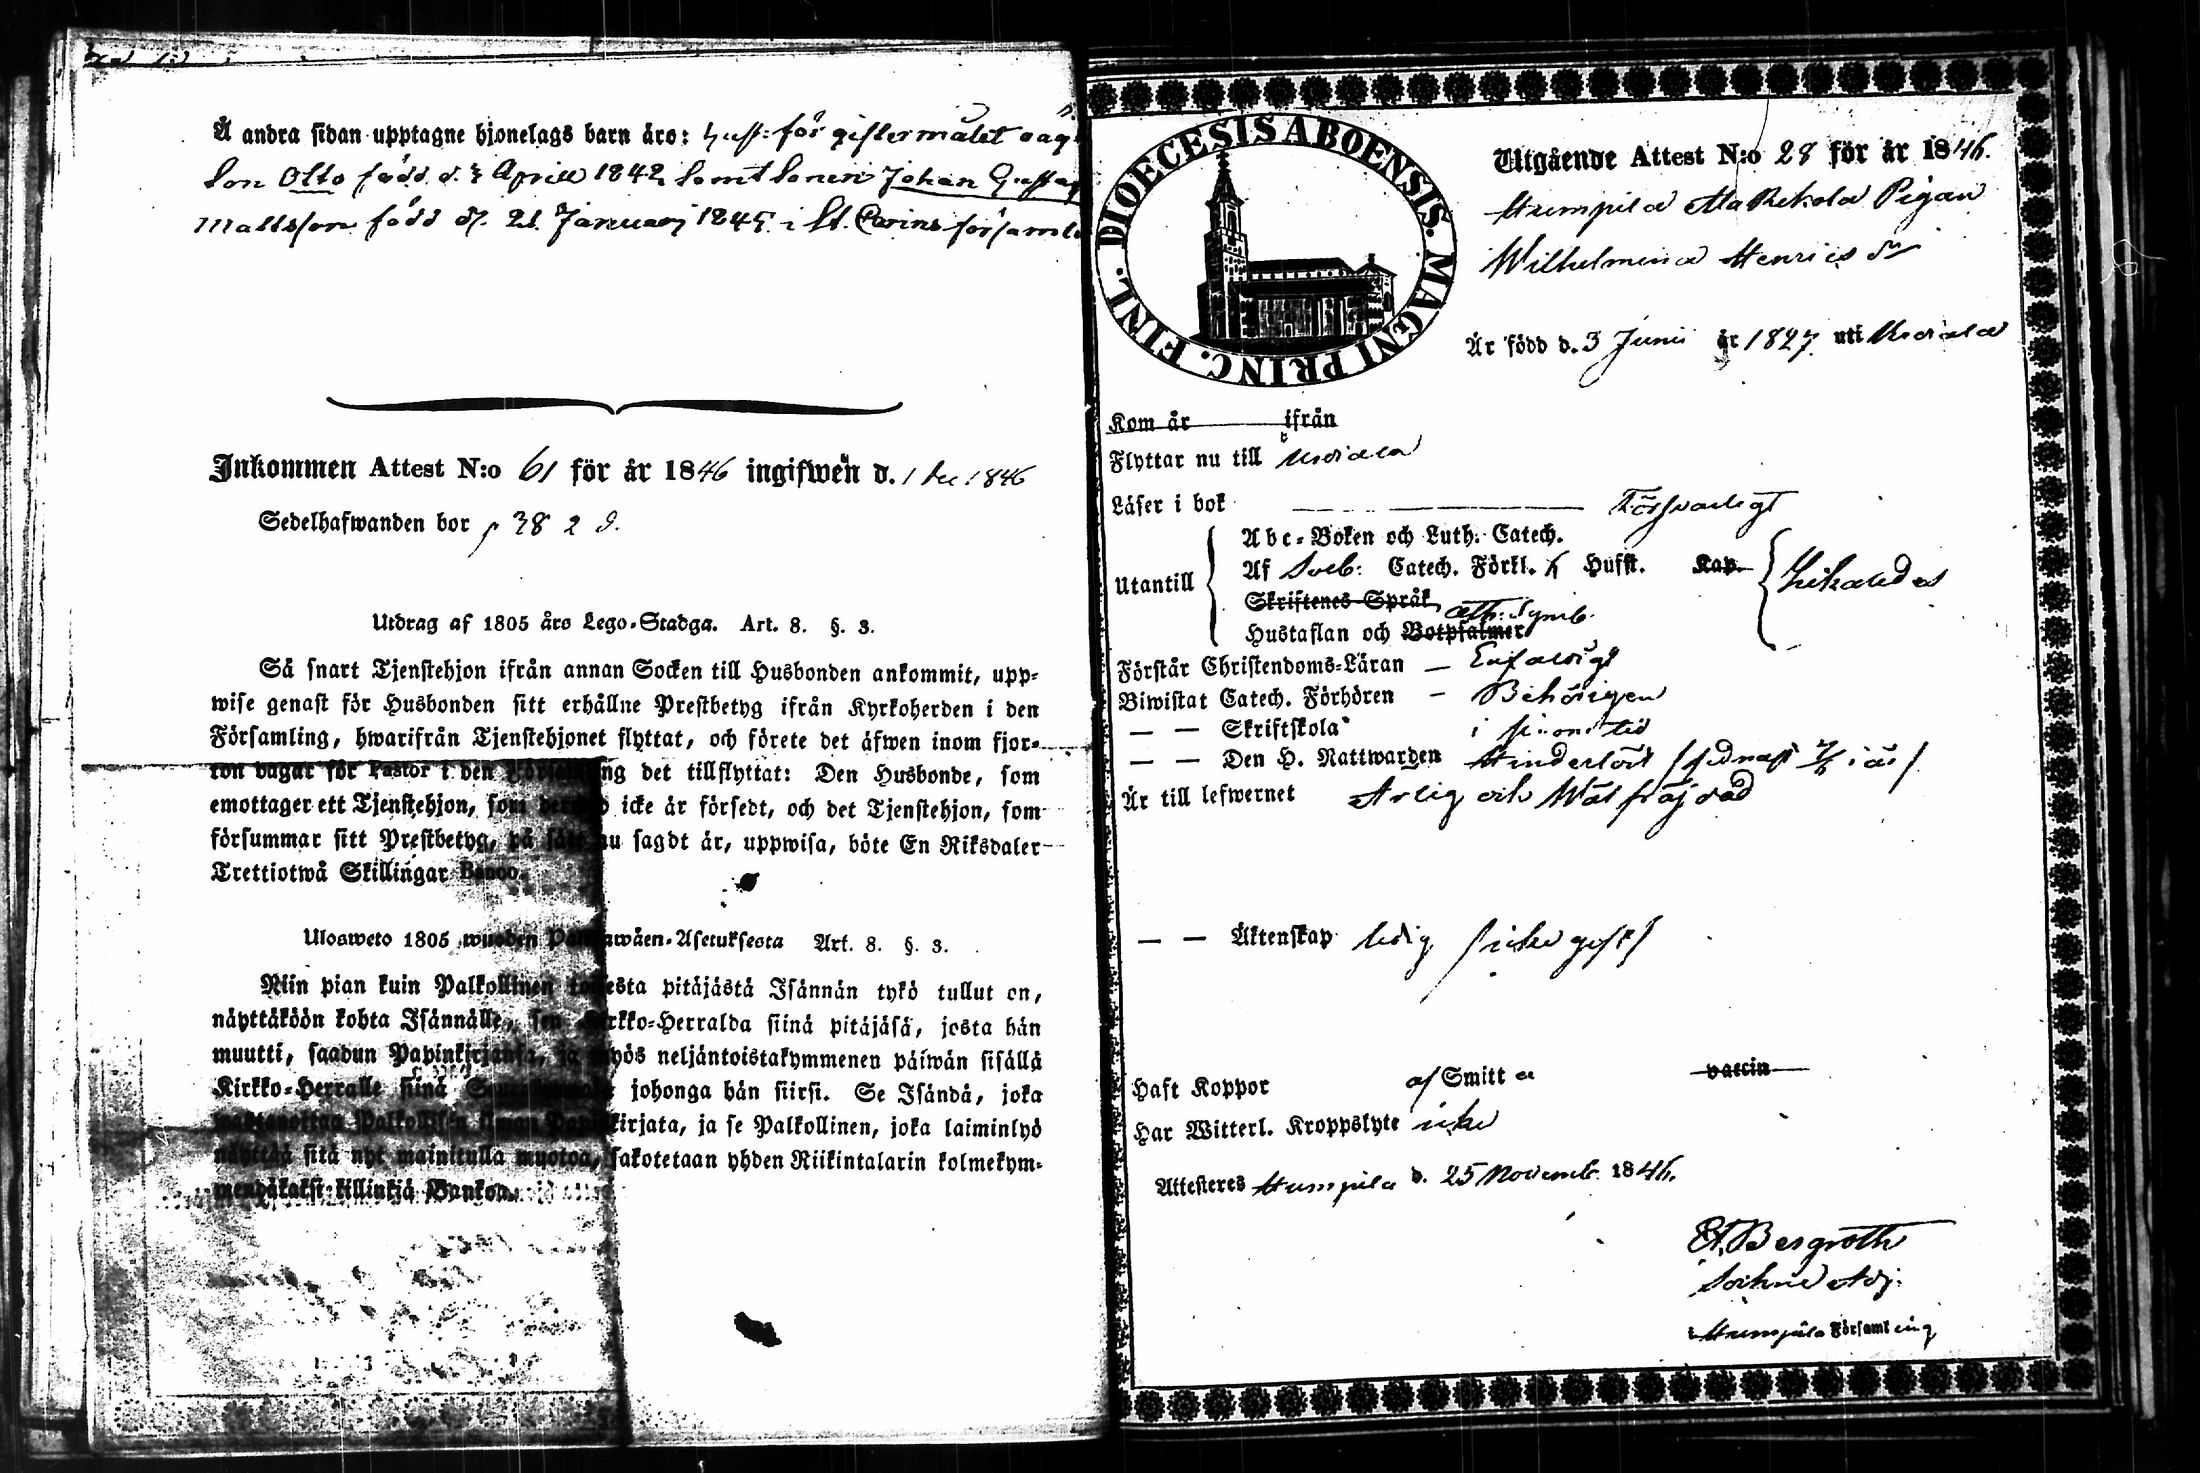 Å andra sidan upptagne hjonelags barn äro: hust: för giftermålet
Son Otto född d. Aprill 1842 samt sonen Johan Gustaf
Mattsson född d. 21 Januarj 1845 i St. Carins församl
Inkommen Attest N:o 61 för år 1846 ingifwen d. 1 Dec 1846
Sedelhafwanden bor p 38 2 d.
Utdrag af 1805 års Lego-Stadga. Art. 8. §. 3.
Så snart Tjenstehjon ifrån annan Socken till Husbonden ankommit, upp-
wise genast för Husbonden sitt erhållne Prestbetyg ifrån Kyrkoherden i den
Församling, hwarifrån Tjenstehjonet flyttat, och förete det äfwen inom fjor-
ton dagar för Pastor i den Församling det tillflyttat: Den Husbonde, som
emottager ett Tjenstehjon, som dermed icke är försedt, och det Tjenstehjon, som
försummar sitt Prestbetyg, på sätt nu sagdt är, uppwisa, böte En Riksdaler
Trettiotwå Skillingar Banco.
Ulosweto 1805 wuoden Palkkawäen-Asetuksesta Art. 8. §. 3.
Niin pian kuin Palkollinen toisesta pitäjästä Isännän tykö tullut on,
näyttäköön kohta Isännälle, sen Kirkko-Herralda siinä pitäjäsä, josta hän
muutti, saadun Papinkirjansa, ja myös neljäntoistakymmenen päiwän sisällä
Kirkko-Herralle siinä Seurakunnasa johonga hän siirsi. Se Isändä, joka
wastanottaa Palkollisen ilman Papinkirjata, ja se Palkollinen, joka laiminlyö
näyttää sitä nyt mainitulla muotoa, sakotetaan yhden Riikintalarin kolmekym-
mendäkaksi killinkiä Bankoa.
DIOECESIS ABOENSIS. MAGNI PRINC. FINL.
Utgående Attest N:o 28 för år 1846.
Humpila Pigan
Wilhelmina Henrics dr
Är född d. 3 Junii år 1827 uti Urdiala
Kom år ifrån
Flyttar nu till Urdiala
Läser i bok Försvarligt
Abc-Boken och Luth. Catech.
Utantill Af Sveb: Catech. Förkl. Hufst. Kap. Likaledes
Skriftenes Språk, Ath: Symb.
Hustaflan och Botpsalmer
Förstår Christendoms-Läran – Enfaldigt
Biwistat Catech. Förhören – Behörigen
— — Skriftskola i sinom tid
— — Den H. Nattwarden Hinderlöst (sednast i år)
Är till lefwernet Ärlig och Wälfräjdad
— — Äktenskap ledig (icke gift)
Haft Koppor af Smitta vaccin
Har Witterl. Kroppslyte icke
Attesteres Humpila d. 25 Novemb. 1846.
Bergroth
Sockne Adj.
i Humpila Församling